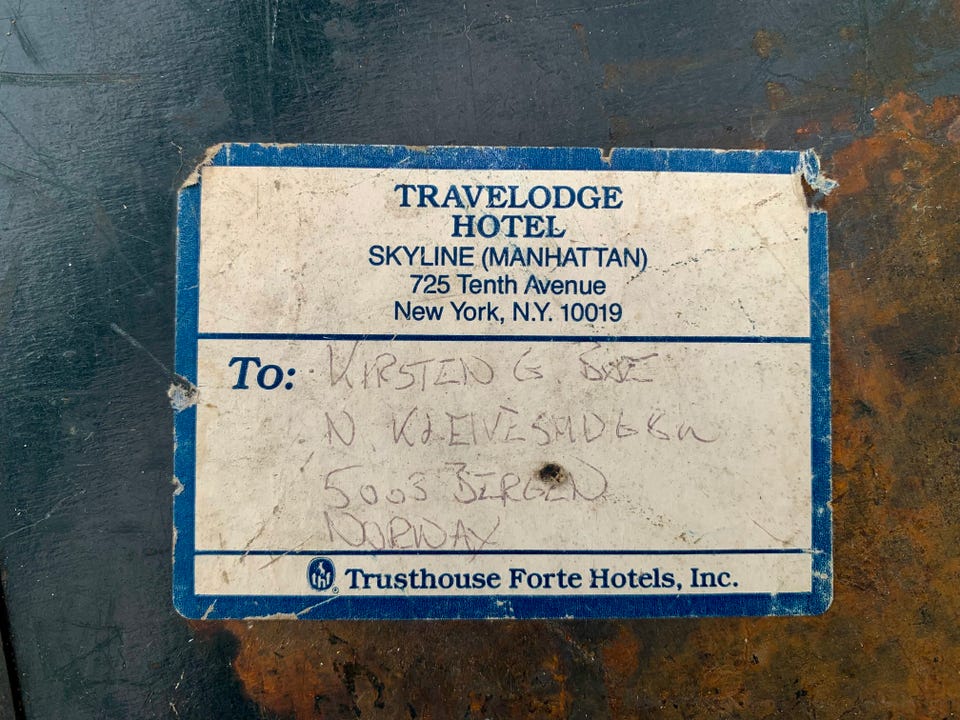 TRAVELODGE
HOTEL
SKYLINE (MANHATTAN)
725 Tenth Avenue
New York, N.Y. 10019
To: KIRSTEN G
N
5003 BERGEN
NORWAY
Trusthouse Forte Hotels, Inc.